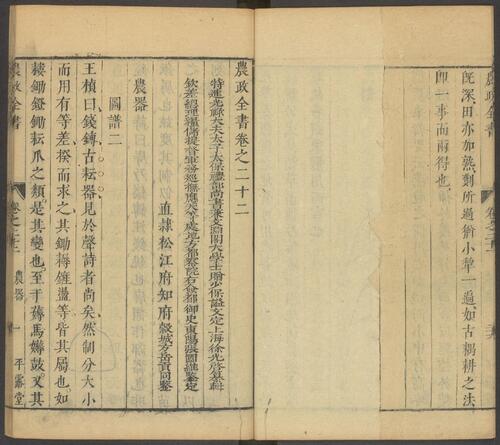 農政全書
旣深田亦加熟剗所過猶小犂一遍如古耦耕之法
卽一事而兩得也
農政全書卷之二十二
特進光祿大夫太子太保禮部尚書兼文淵閣大學士贈少保謚文定上海徐光啓纂輯
欽差總理糧儲提督軍務巡撫應天等處地方都察院右僉都御史東陽張國維鑒定
直隷松江府知府穀城方岳貢同鑒
農器
圖譜二
王楨曰錢鏄古耘器見於聲詩者尚矣然制分大小
而用有等差揆而求之其鋤耨錐盪等皆其屬也如
耬鋤鐙鋤耘爪之類是其變也至于薅馬薅鼓又其
農政全書
卷之二十二
農器
一
平露堂